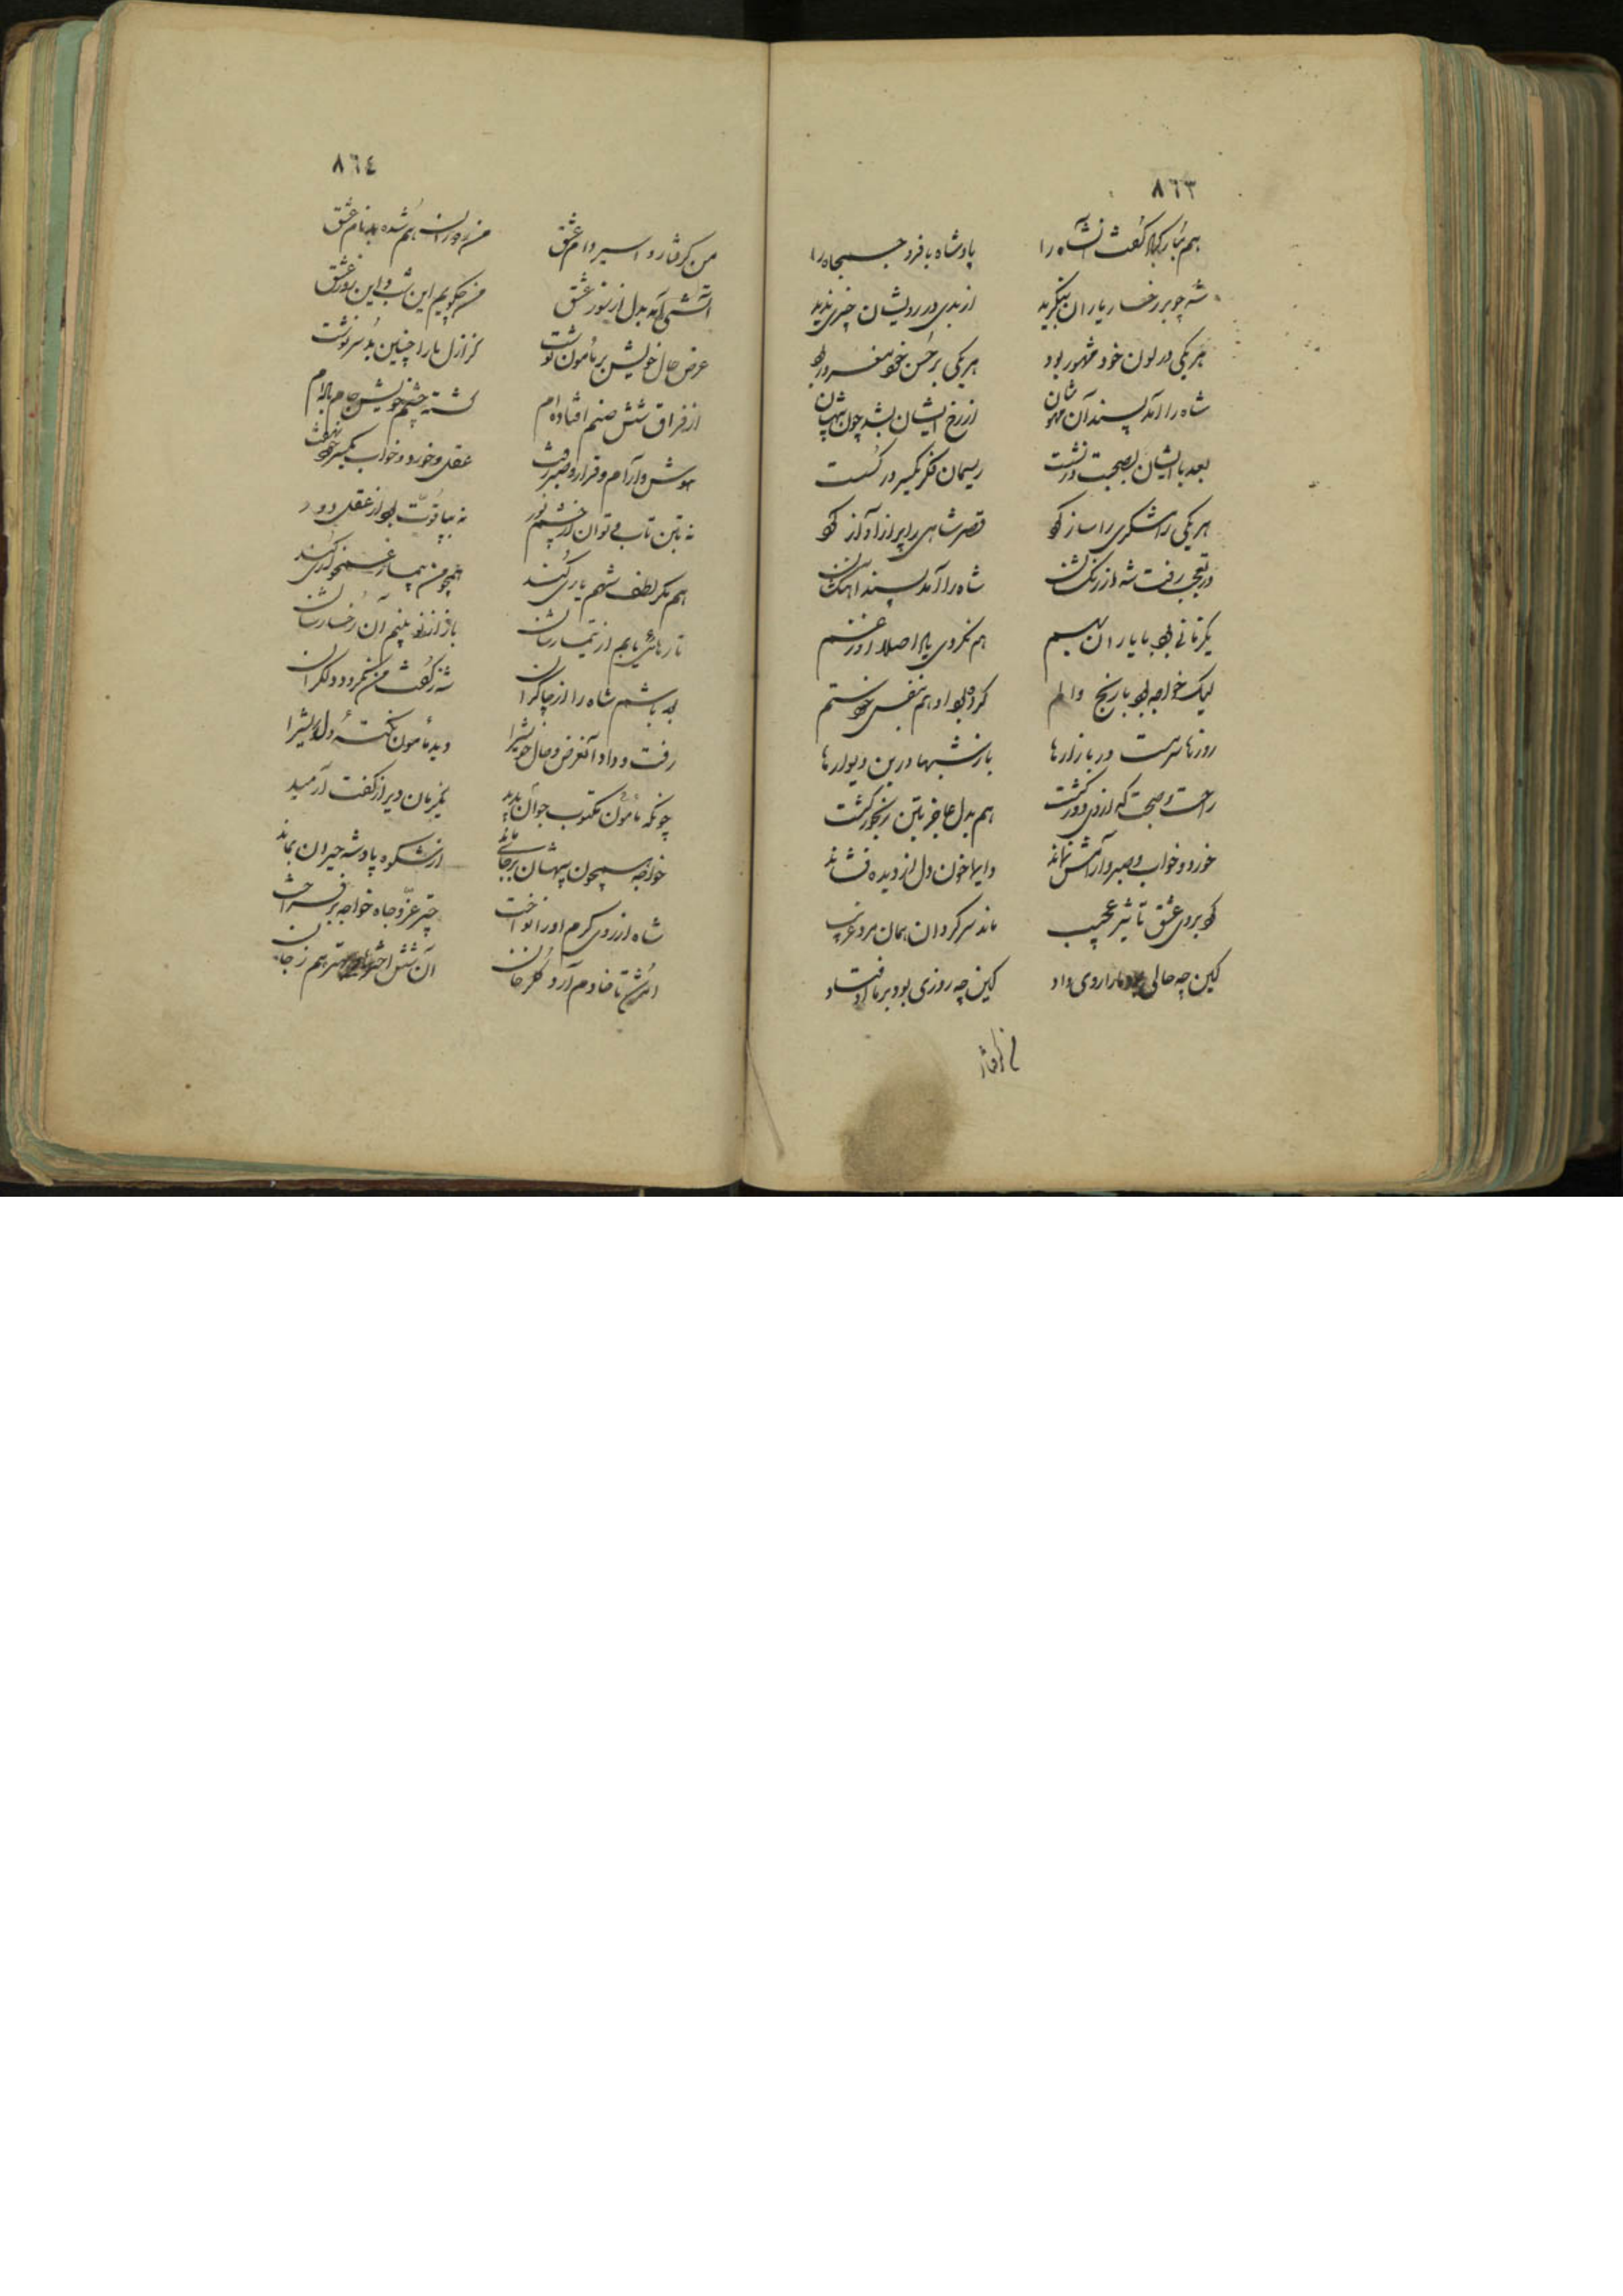 ٨٦٣
هم مبارکباد گفت آنشاه را
پادشاه با فر و جمجاه را
شه چو بر رخسار یاران بنگرید
از بدی در رویشان چیزی ندید
هر یکی در لون خود مشهور بود
هر یکی بر حسن خود مغرور بود
شاه را آمد پسند آن مهوشان
از رخ ایشان بشد چون بیهشان
بعد با ایشان بصحبت در نشست
ریسمان فکر یکسر در گسست
هر یکی رامشگری را ساز کرد
قصر شاهی را پر از آواز کرد
در تعجب رفت شه از رنگشان
شاه را آمد پسند آهنگشان
یکزمانی بود با یاران بهم
هم نکردی یاد اصلا او ز غم
لیک خواجه بود با رنج و الم
کرده بود او هم بنفس خود ستم
روزها سرمست در بازارها
باز شبها در بن دیوارها
راحت و صحبت که از وی دور گشت
هم بدل عاجز بتن رنجور گشت
خورد و خواب و صبر و آرامش نماند
دایما خون دل از دیده فشاند
کرد بر وی عشق تاثیر عجیب
ماند سرگردان همان مرد غریب
کین چه حالی بود ما را روی داد
کین چه روزی بود بر ما اوفتاد
من گرفتار
٨٦٤
من گرفتار و اسیر دام عشق
در دوران هم شده بدنام عشق
آتشی آمد بدل از سوز عشق
من چگویم این شب و این روز عشق
عرض حال خویش بر مأمون نوشت
کز ازل ما را چنین بد سرنوشت
از فراق شش صنم افتاده ام
گشته چشم خویش جام باده ام
هوش و آرام و قرار و صبر رفت
عقل و خورد و خواب یکسر
نه بتن تاب و توان در چشم نور
نه بپا قوت بود از عقل دور
هم مگر لطف شهم یاری کند
همچو من بیمار غمخواری کند
تا رهائی یابم از تیمارشان
باز از نو بینم آن رخسارشان
بد باشم شاه را از چاکران
رفت و داد آنعرض و حال خویشرا
دید مأمون نکته دلریشرا
چونکه مأمون مکتوب جوان بدید
یکزمان دیر از گفت آرمید
خواجه همچون بیهشان برجا بماند
از شکوه پادشه حیران بماند
شاه از روی کرم او را نواخت
چتر عز و جاه خواجه بر فراخت
امرش تا خادم آرد گلرخان
آن شش اختر بهتر هم ز جان